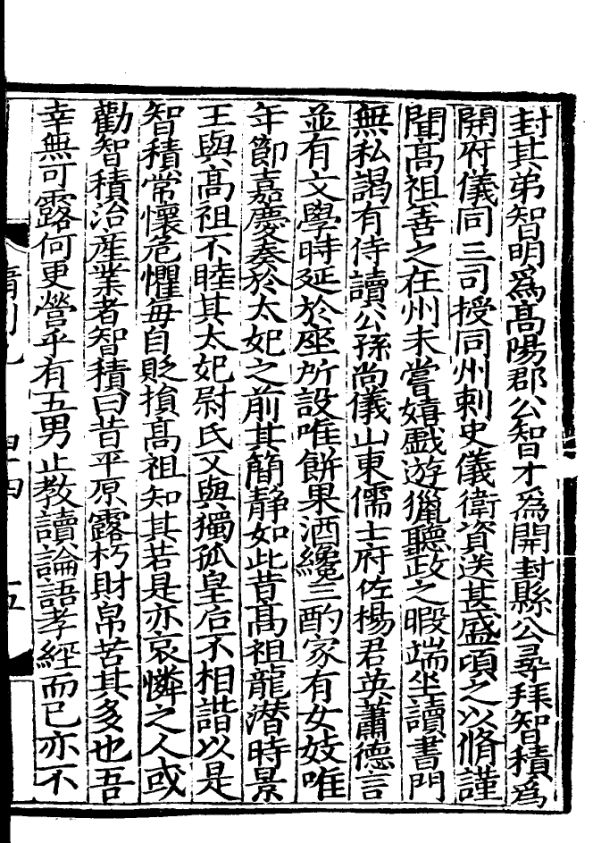 封其弟智明爲髙陽郡公智才爲開封縣公尋拜智積爲
開府儀同三司授同州刺史儀衛資送甚盛頃之以脩謹
聞髙祖善之在州未嘗嬉戲遊獵聽政之暇端坐讀書門
無私謁有侍讀公孫尚儀山東儒士府佐楊君英蕭德言
並有文學時延於座所設唯餅果酒纔三酌家有女妓唯
年節嘉慶奏於太妃之前其簡靜如此昔髙祖龍潜時景
王與髙祖不睦其太妃尉氏又與獨孤皇后不相諧以是
智積常懷危懼每自貶損髙祖知其若是亦哀憐之人或
勸智積治産業者智積曰昔平原露朽財帛苦其多也吾
幸無可露何更營乎有五男止教讀論語孝經而已亦不